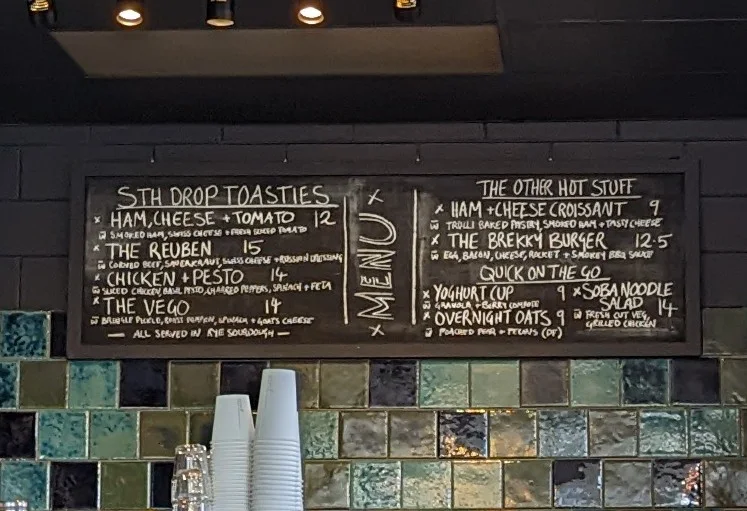 STH DROP TOASTIES
x HAM, CHEESE + TOMATO 12
W SMOKED HAM, SWISS CHEESE + FRESH SLICED TOMATO
x THE REUBEN 15
W CORNED BEEF, SAUERKRAUT, SWISS CHEESE + RUSSIAN DRESSING
x CHICKEN + PESTO 14
W SLICED CHICKEN, BASIL PESTO, CHARRED PEPPERS, SPINACH + FETA
x THE VEGO 14
W PICKLE, PUMPKIN, SPINACH + GOATS CHEESE
— ALL SERVED IN RYE SOURDOUGH —
x MENU x
THE OTHER HOT STUFF
x HAM + CHEESE CROISSANT 9
W TROLLI BAKED PASTRY, SMOKED HAM + TASTY CHEESE
x THE BREKKY BURGER 12.5
W EGG, BACON, CHEESE, ROCKET + SMOKEY BBQ SAUCE
QUICK ON THE GO
x YOGHURT CUP 9
W GRANOLA + BERRY COMPOTE
x OVERNIGHT OATS 9
W POACHED PEAR + PECANS (DF)
x SOBA NOODLE
SALAD 14
W FRESH CUT VEG,
GRILLED CHICKEN